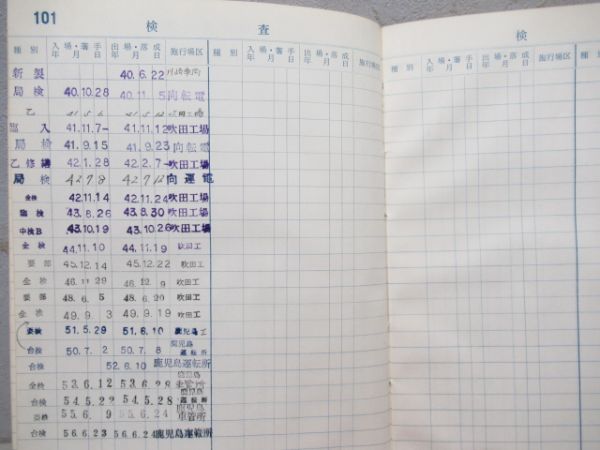 101
検 査
検
種 別 入場・著手年月日 出場・落成年月日 施行場区 種 別 入場・著手年月日 出場・落成年月日 施行場区
種 別 入場・著手年月日 出場・落成年月日 施行場区 種 別
新製 40.6.22
局検 40.10.28 40.11.5 向転電
乙
臨入 41.11.7- 41.11.12 吹田工場
局検 41.9.15 41.9.23 向転電
乙修繕 42.1.28 42.2.7- 吹田工場
局検 42 7 8 42 7 12 向運電
全検 42.11.14 42.11.24 吹田工場
臨検 43.8.26 43.8.30 吹田工場
中検B 43.10.19 43.10.26 吹田工場
全検 44.11.10 44.11.19 吹田工
要部 45.12.14 45.12.22 吹田工
全検 46.11 29 46.12.9 吹田工
要部 48.6.5 48.6.20 吹田工
全検 49.9.3 49.9.19 吹田工
要検 51.5.29 51.6.10 鹿児島工
台検 50.7.2 50.7.8 鹿児島運転所
52.6.10 鹿児島運転所
全検 53.6.12 53.6.28
台検 54.5.22 54.5.28 鹿児島運転所
要検 55.6.9 55.6.24 鹿児島車管所
台検 56.6.23 56.6.24 鹿児島車管所